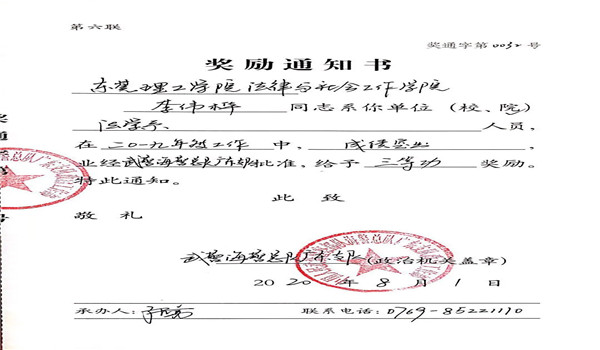 第六联
奖通字第0032号
奖励通知书
东莞理工学院法律与社会工作学院
李伟桦 同志系你单位（校、院）
法学系 人员，
在二〇一九年的工作中，成绩突出
业经武警海警总队广东支队批准，给予三等功奖励。
特此通知。
此致
敬礼
武警海警总队广东支队（政治机关盖章）
2020年8月1日
承办人： 联系电话：0769-85221110